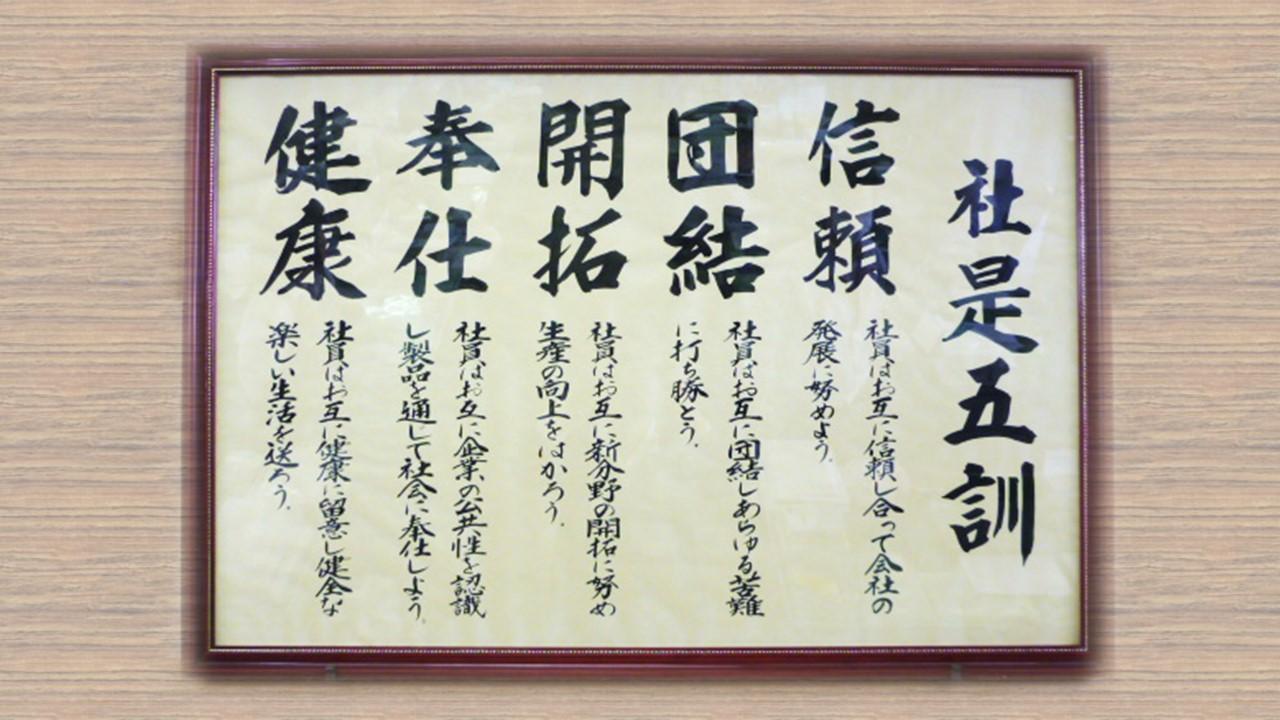 社是五訓
信頼
社員はお互に信頼し合って会社の
発展に努めよう。
団結
社員はお互に団結しあらゆる苦難
に打ち勝とう。
開拓
社員はお互に新分野の開拓に努め
生産の向上をはかろう。
奉仕
社員はお互に企業の公共性を認識
し製品を通して社会に奉仕しよう。
健康
社員はお互に健康に留意し健全な
楽しい生活を送ろう。